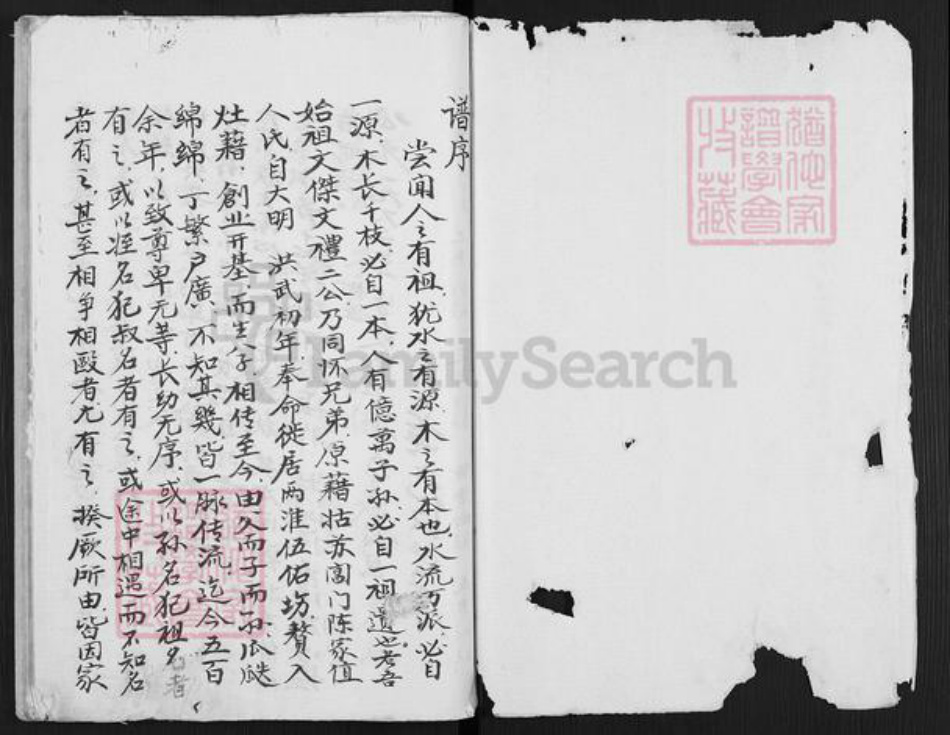 谱序
尝闻人之有祖、犹水之有源、木之有本也、水流万派、必自
一源、木长千枝必自一本、人有億萬子孙、必自一祖遺也、考吾
始祖文傑文禮二公、乃同怀兄弟、原藉姑苏阊门陈家
人氏、自大明 洪武初年、奉命徙居两淮伍佑场、贅入
灶藉、創业开基、而生八子、相传至今、由父而子而孙、瓜瓞
綿綿、丁繁户廣、不知其幾、皆一脉传流、迄今五百
余年、以致尊卑无等、长幼无序、或以孙名犯祖名者
有之、或以姪名犯叔名者有之、或途中相遇而不知名
者有之、甚至相争相毆者尤有之、揆厥所由、皆因家
猶他家
譜學會
收藏
FamilySearch